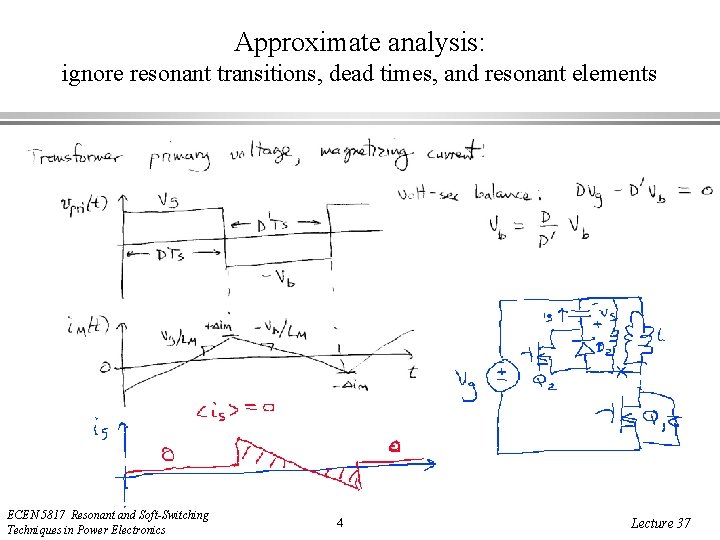 Approximate analysis:
ignore resonant transitions, dead times, and resonant elements
Transformer primary voltage, magnetizing current:
volt-sec balance: DVg - D'Vb = 0
Vb = D/D' Vb
vpri(t)
Vg
DTs
D'Ts
-Vb
iM(t)
Vg/LM
+ΔiM
-Vb/LM
0
-ΔiM
t
<is> = 0
is
0
0
Vg
+
-
is
-
Vs
+
D2
L
Q2
X
Q1
ECEN 5817 Resonant and Soft-Switching
Techniques in Power Electronics
4
Lecture 37